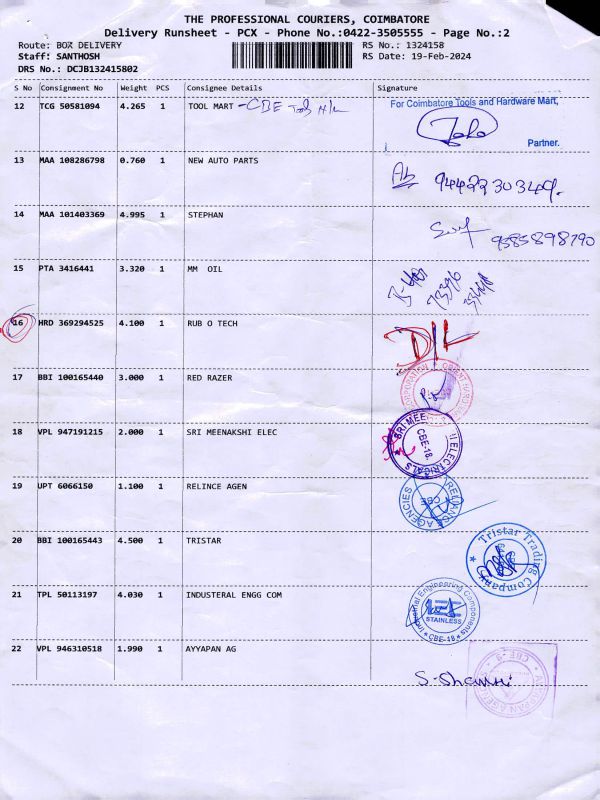 THE PROFESSIONAL COURIERS, COIMBATORE
Delivery Runsheet - PCX - Phone No.:0422-3505555 - Page No.:2
Route: BOX DELIVERY RS No.: 1324158
Staff: SANTHOSH RS Date: 19-Feb-2024
DRS No.: DCJB132415802
S No Consignment No Weight PCS Consignee Details Signature
12 TCG 50581094 4.265 1 TOOL MART - CBE For Coimbatore Tools and Hardware Mart,
Partner.
13 MAA 108286798 0.760 1 NEW AUTO PARTS
14 MAA 101403369 4.995 1 STEPHAN
15 PTA 3416441 3.320 1 MM OIL
16 HRD 369294525 4.100 1 RUB O TECH
17 BBI 100165440 3.000 1 RED RAZER
18 VPL 947191215 2.000 1 SRI MEENAKSHI ELEC SRI MEE ELECTRICALS CBE-18.
19 UPT 6066150 1.100 1 RELINCE AGEN RELIANCE AGENCIES CBE
20 BBI 100165443 4.500 1 TRISTAR Tristar Trading Company
21 TPL 50113197 4.030 1 INDUSTERAL ENGG COM Industrial Engineering Components STAINLESS CBE-18
22 VPL 946310518 1.990 1 AYYAPAN AG